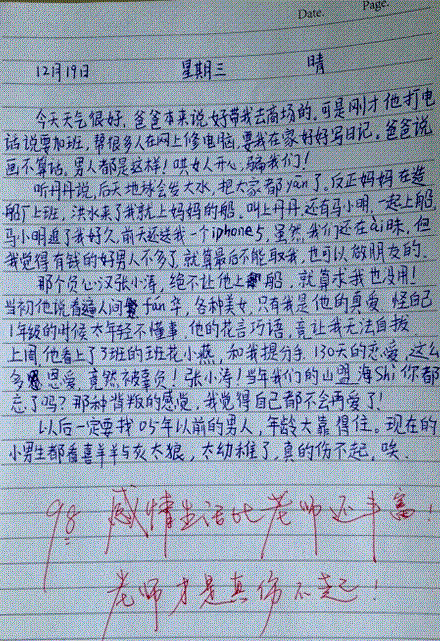 Date.
Page.
12月19日 星期三 晴
今天天气很好,爸爸本来说好带我去商场的,可是刚才他打电
话说要加班,帮很多人在网上修电脑,要我在家好好写日记。爸爸说
画不算话,男人都是这样!哄女人开心,骗我们!
听丹丹说,后天地球会发大水,把大家都yān了,反正妈妈在造
船厂上班,洪水来了我就上妈妈的船。叫上丹丹,还有马小明,一起上船,
马小明追了我好久,前天还送我一个iphone5,虽然我们还在ài昧,但
我觉得有钱的好男人不多了,就算最后不能娶我,也可以做朋友的。
那个负心汉张小涛,绝不让他上船,就算求我也没用!
当初他说看遍人间fán华,各种美女,只有我是他的真爱,怪自己
1年级的时候太年轻不懂事,他的花言巧语,竟让我无法自拔
上周他看上了3班的班花小燕,和我提分手,130天的恋爱,这么
多恩爱,竟然被辜负!张小涛!当年我们的山盟海Shi你都
忘了吗?那种背叛的感觉,我觉得自己都不会再爱了!
以后一定要找05年以前的男人,年龄大靠得住。现在的
小男生都看喜羊羊与灰太狼,太幼稚了,真的伤不起,唉.
98 感情生活比老师还丰富!
老师才是真伤不起!